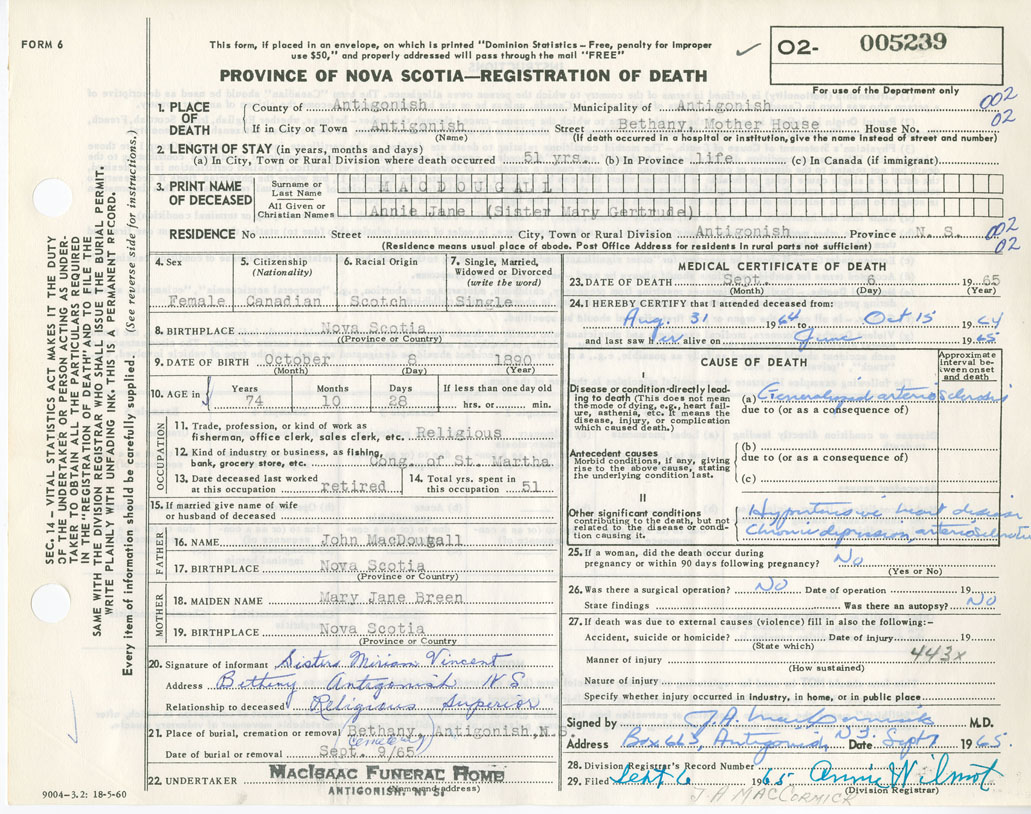 FORM 6
This form, if placed in an envelope, on which is printed "Dominion Statistics – Free, penalty for improper
use $50," and properly addressed will pass through the mail "FREE"
✓
O2- 005239
PROVINCE OF NOVA SCOTIA—REGISTRATION OF DEATH
For use of the Department only
1. PLACE OF DEATH
County of Antigonish Municipality of Antigonish
002
02
If in City or Town Antigonish Street Bethany, Mother House House No.
(Name) (If death occurred in a hospital or institution, give the name instead of street and number)
2. LENGTH OF STAY (in years, months and days)
(a) In City, Town or Rural Division where death occurred 51 yrs. (b) In Province life (c) In Canada (if immigrant)
3. PRINT NAME OF DECEASED
Surname or Last Name MACDOUGALL
All Given or Christian Names Annie Jane (Sister Mary Gertrude)
RESIDENCE No Street City, Town or Rural Division Antigonish Province N. S.
002
02
(Residence means usual place of abode. Post Office Address for residents in rural parts not sufficient)
4. Sex
Female
5. Citizenship (Nationality)
Canadian
6. Racial Origin
Scotch
7. Single, Married, Widowed or Divorced (write the word)
Single
8. BIRTHPLACE Nova Scotia
((Province or Country)
9. DATE OF BIRTH October 8 1890
(Month) (Day) (Year)
10. AGE in
Years Months Days If less than one day old
74 10 28 hrs. or min.
OCCUPATION
11. Trade, profession, or kind of work as
fisherman, office clerk, sales clerk, etc. Religious
12. Kind of industry or business, as fishing,
bank, grocery store, etc. Cong. of St. Martha
13. Date deceased last worked at this occupation retired
14. Total yrs. spent in this occupation 51
15. If married give name of wife
or husband of deceased
FATHER
16. NAME John MacDougall
17. BIRTHPLACE Nova Scotia
(Province or Country)
MOTHER
18. MAIDEN NAME Mary Jane Breen
19. BIRTHPLACE Nova Scotia
(Province or Country
20. Signature of informant Sister Miriam Vincent
Address Bethany Antigonish N S
Relationship to deceased Religious Superior
21. Place of burial, cremation or removal Bethany, Antigonish, N.S.
(cemetery)
Date of burial or removal Sept. 9/65
22. UNDERTAKER MACISAAC FUNERAL HOME
ANTIGONISH, N. S.
(Name and address)
MEDICAL CERTIFICATE OF DEATH
23. DATE OF DEATH Sept. 6 1965
(Month) (Day) (Year)
24. I HEREBY CERTIFY that I attended deceased from:
Aug. 31 1964 to Oct 15 1964
and last saw her alive on June 1965
CAUSE OF DEATH
Approximate interval between onset and death
I
Disease or condition directly leading to death (This does not mean the mode of dying, e.g., heart failure, asthenia, etc. It means the disease, injury, or complication which caused death.)
(a) Generalized arteriosclerosis
due to (or as a consequence of)
Antecedent causes
Morbid conditions, if any, giving rise to the above cause, stating the underlying condition last.
(b)
due to (or as a consequence of)
(c)
II
Other significant conditions
contributing to the death, but not related to the disease or condition causing it.
Hypertensive heart disease
Chronic depression, arteriosclerotic
25. If a woman, did the death occur during
pregnancy or within 90 days following pregnancy? No
(Yes or No)
26. Was there a surgical operation? NO Date of operation 19
State findings Was there an autopsy? NO
27. If death was due to external causes (violence) fill in also the following:–
Accident, suicide or homicide? Date of injury 19
(State which)
Manner of injury 443x
(How sustained)
Nature of injury
Specify whether injury occurred in industry, in home, or in public place
Signed by J. A. MacCormick M.D.
Address Box 663, Antigonish, N.S. Date Sept 1965
28. Division Registrar's Record Number
29. Filed Sept 6 1965 Annie Wilmot
(Division Registrar)
J A MACCORMICK
9004-3.2: 18-5-60
SEC. 14 – VITAL STATISTICS ACT MAKES IT THE DUTY
OF THE UNDERTAKER OR PERSON ACTING AS UNDER-
TAKER TO OBTAIN ALL THE PARTICULARS REQUIRED
IN THE "REGISTRATION OF DEATH" AND TO FILE THE
SAME WITH THE DIVISION REGISTRAR WHO SHALL ISSUE THE BURIAL PERMIT.
WRITE PLAINLY WITH UNFADING INK. THIS IS A PERMANENT RECORD.
Every item of information should be carefully supplied. (See reverse side for instructions.)